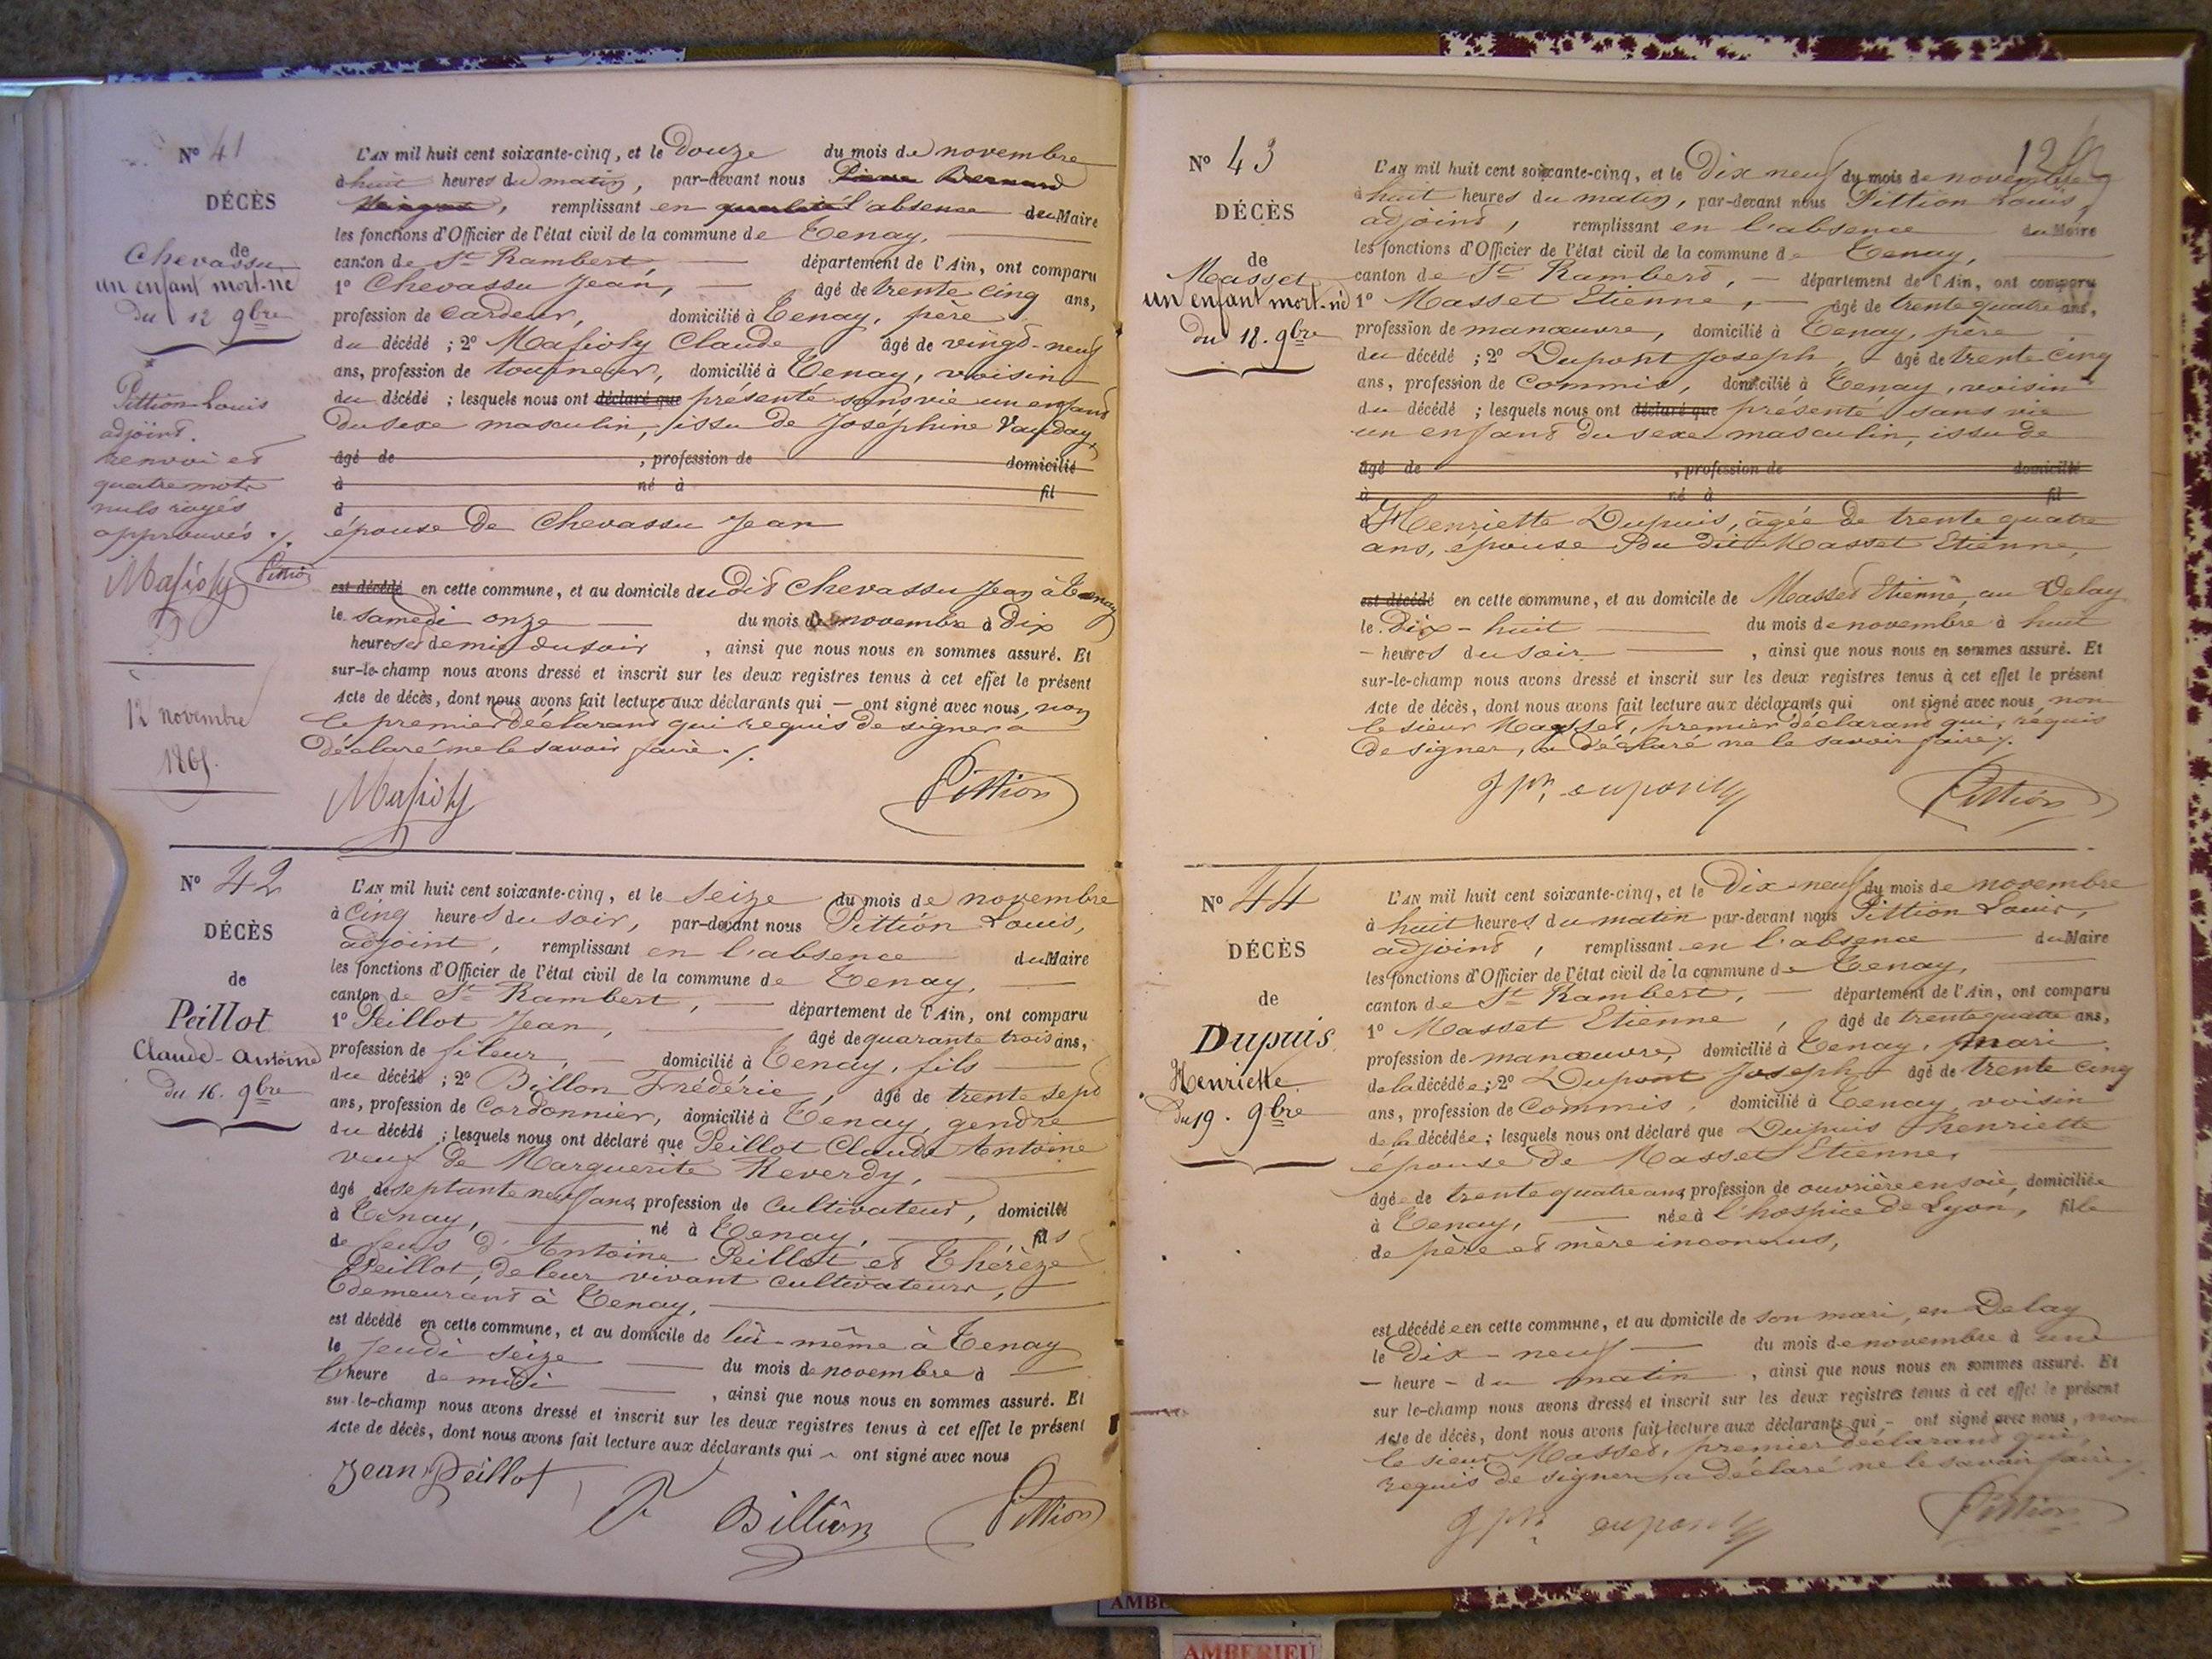 N° 41
DÉCÈS
de
Chevassu
un enfant mort-né
Du 12 9bre
Pittion Louis
adjoint.
renvoi et
quatre mots
nuls rayés
approuvés ./.
Pittion
12 novembre
1865.
L'AN mil huit cent soixante-cinq, et le Douze du mois de novembre
à huit heures du matin, par-devant nous Pierre Bernard
, remplissant en qualité l'absence du Maire
les fonctions d'Officier de l'état civil de la commune de Tenay,
canton de St Rambert, département de l'Ain, ont comparu
1° Chevassu Jean, âgé de trente cinq ans,
profession de Cardeur, domicilié à Tenay, père
du décédé ; 2° Claude âgé de vingt-neuf
ans, profession de tourneur, domicilié à Tenay, voisin
du décédé ; lesquels nous ont déclaré que présenté sans vie un enfant
du sexe masculin, issu de Joséphine
âgé de , profession de domicilié
à né à fil
d
épouse de Chevassu Jean
est décédé en cette commune, et au domicile du Dit Chevassu Jean à Tenay
le samedi onze du mois de novembre à Dix
heures et demie du soir , ainsi que nous nous en sommes assuré. Et
sur-le-champ nous avons dressé et inscrit sur les deux registres tenus à cet effet le présent
Acte de décès, dont nous avons fait lecture aux déclarants qui — ont signé avec nous, non
le premier déclarant qui requis de signer a
déclaré ne le savoir faire ./.
Pittion
N° 42
DÉCÈS
de
Peillot
Claude-Antoine
Du 16. 9bre
L'AN mil huit cent soixante-cinq, et le seize du mois de novembre
à Cinq heures du soir, par-devant nous Pittion Louis,
adjoint, remplissant en l'absence du Maire
les fonctions d'Officier de l'état civil de la commune de Tenay,
canton de St Rambert, département de l'Ain, ont comparu
1° Peillot Jean, âgé de quarante trois ans,
profession de fileur, domicilié à Tenay, fils
du décédé ; 2° Billon Frédéric, âgé de trente sept
ans, profession de Cordonnier, domicilié à Tenay, gendre
du décédé ; lesquels nous ont déclaré que Peillot Claude Antoine
veuf de Marguerite Reverdy,
âgé de septante neuf ans, profession de Cultivateur, domicilié
à Tenay, né à Tenay, fils
de feus d'Antoine Peillot et Thérèze
Peillot, de leur vivant cultivateurs,
demeurant à Tenay,
est décédé en cette commune, et au domicile de lui-même à Tenay
le jeudi seize du mois de novembre à
l'heure de midi , ainsi que nous nous en sommes assuré. Et
sur-le-champ nous avons dressé et inscrit sur les deux registres tenus à cet effet le présent
Acte de décès, dont nous avons fait lecture aux déclarants qui ont signé avec nous
Jean Peillot
Billion
Pittion
N° 43
DÉCÈS
de
Masset
un enfant mort-né
Du 18. 9bre
L'AN mil huit cent soixante-cinq, et le Dix neuf du mois de novembre
à huit heures du matin, par-devant nous Pittion Louis,
adjoint, remplissant en l'absence du Maire
les fonctions d'Officier de l'état civil de la commune de Tenay,
canton de St Rambert, département de l'Ain, ont comparu
1° Masset Etienne, âgé de trente quatre ans,
profession de manœuvre, domicilié à Tenay, père
du décédé ; 2° Dupont Joseph, âgé de trente Cinq
ans, profession de Commis, domicilié à Tenay, voisin
du décédé ; lesquels nous ont déclaré que présenté sans vie
un enfant du sexe masculin, issu de
âgé de , profession de domicilié
à né à fil
d'Henriette Dupuis, âgée de trente quatre
ans, épouse du dit Masset Etienne,
est décédé en cette commune, et au domicile de Masset Etienne, au Delay
le Dix-huit du mois de novembre à huit
heures du soir , ainsi que nous nous en sommes assuré. Et
sur-le-champ nous avons dressé et inscrit sur les deux registres tenus à cet effet le présent
Acte de décès, dont nous avons fait lecture aux déclarants qui ont signé avec nous, non
le sieur Masset, premier déclarant qui, requis
de signer, a déclaré ne le savoir faire ./.
jph dupont
Pittion
N° 44
DÉCÈS
de
Dupuis
Henriette
Du 19. 9bre
L'AN mil huit cent soixante-cinq, et le Dix-neuf du mois de novembre
à huit heures du matin par-devant nous Pittion Louis,
adjoint, remplissant en l'absence du Maire
les fonctions d'Officier de l'état civil de la commune de Tenay,
canton de St Rambert, département de l'Ain, ont comparu
1° Masset Etienne, âgé de trente quatre ans,
profession de manœuvre, domicilié à Tenay, mari
de la décédée ; 2° Dupont Joseph âgé de trente cinq
ans, profession de Commis, domicilié à Tenay, voisin
de la décédée ; lesquels nous ont déclaré que Dupuis henriette
épouse de Masset Etienne,
âgée de trente quatre ans, profession de ouvrière en soie, domiciliée
à Tenay, née à l'hospice de Lyon, fille
de père et mère inconnus,
est décédée en cette commune, et au domicile de son mari, en Delay
le Dix-neuf du mois de novembre à une
heure du matin , ainsi que nous nous en sommes assuré. Et
sur le-champ nous avons dressé et inscrit sur les deux registres tenus à cet effet le présent
Acte de décès, dont nous avons fait lecture aux déclarants qui ont signé avec nous, non
le sieur Masset, premier déclarant qui,
requis de signer, a déclaré ne le savoir faire.
jph dupont
Pittion
AMBERIEU